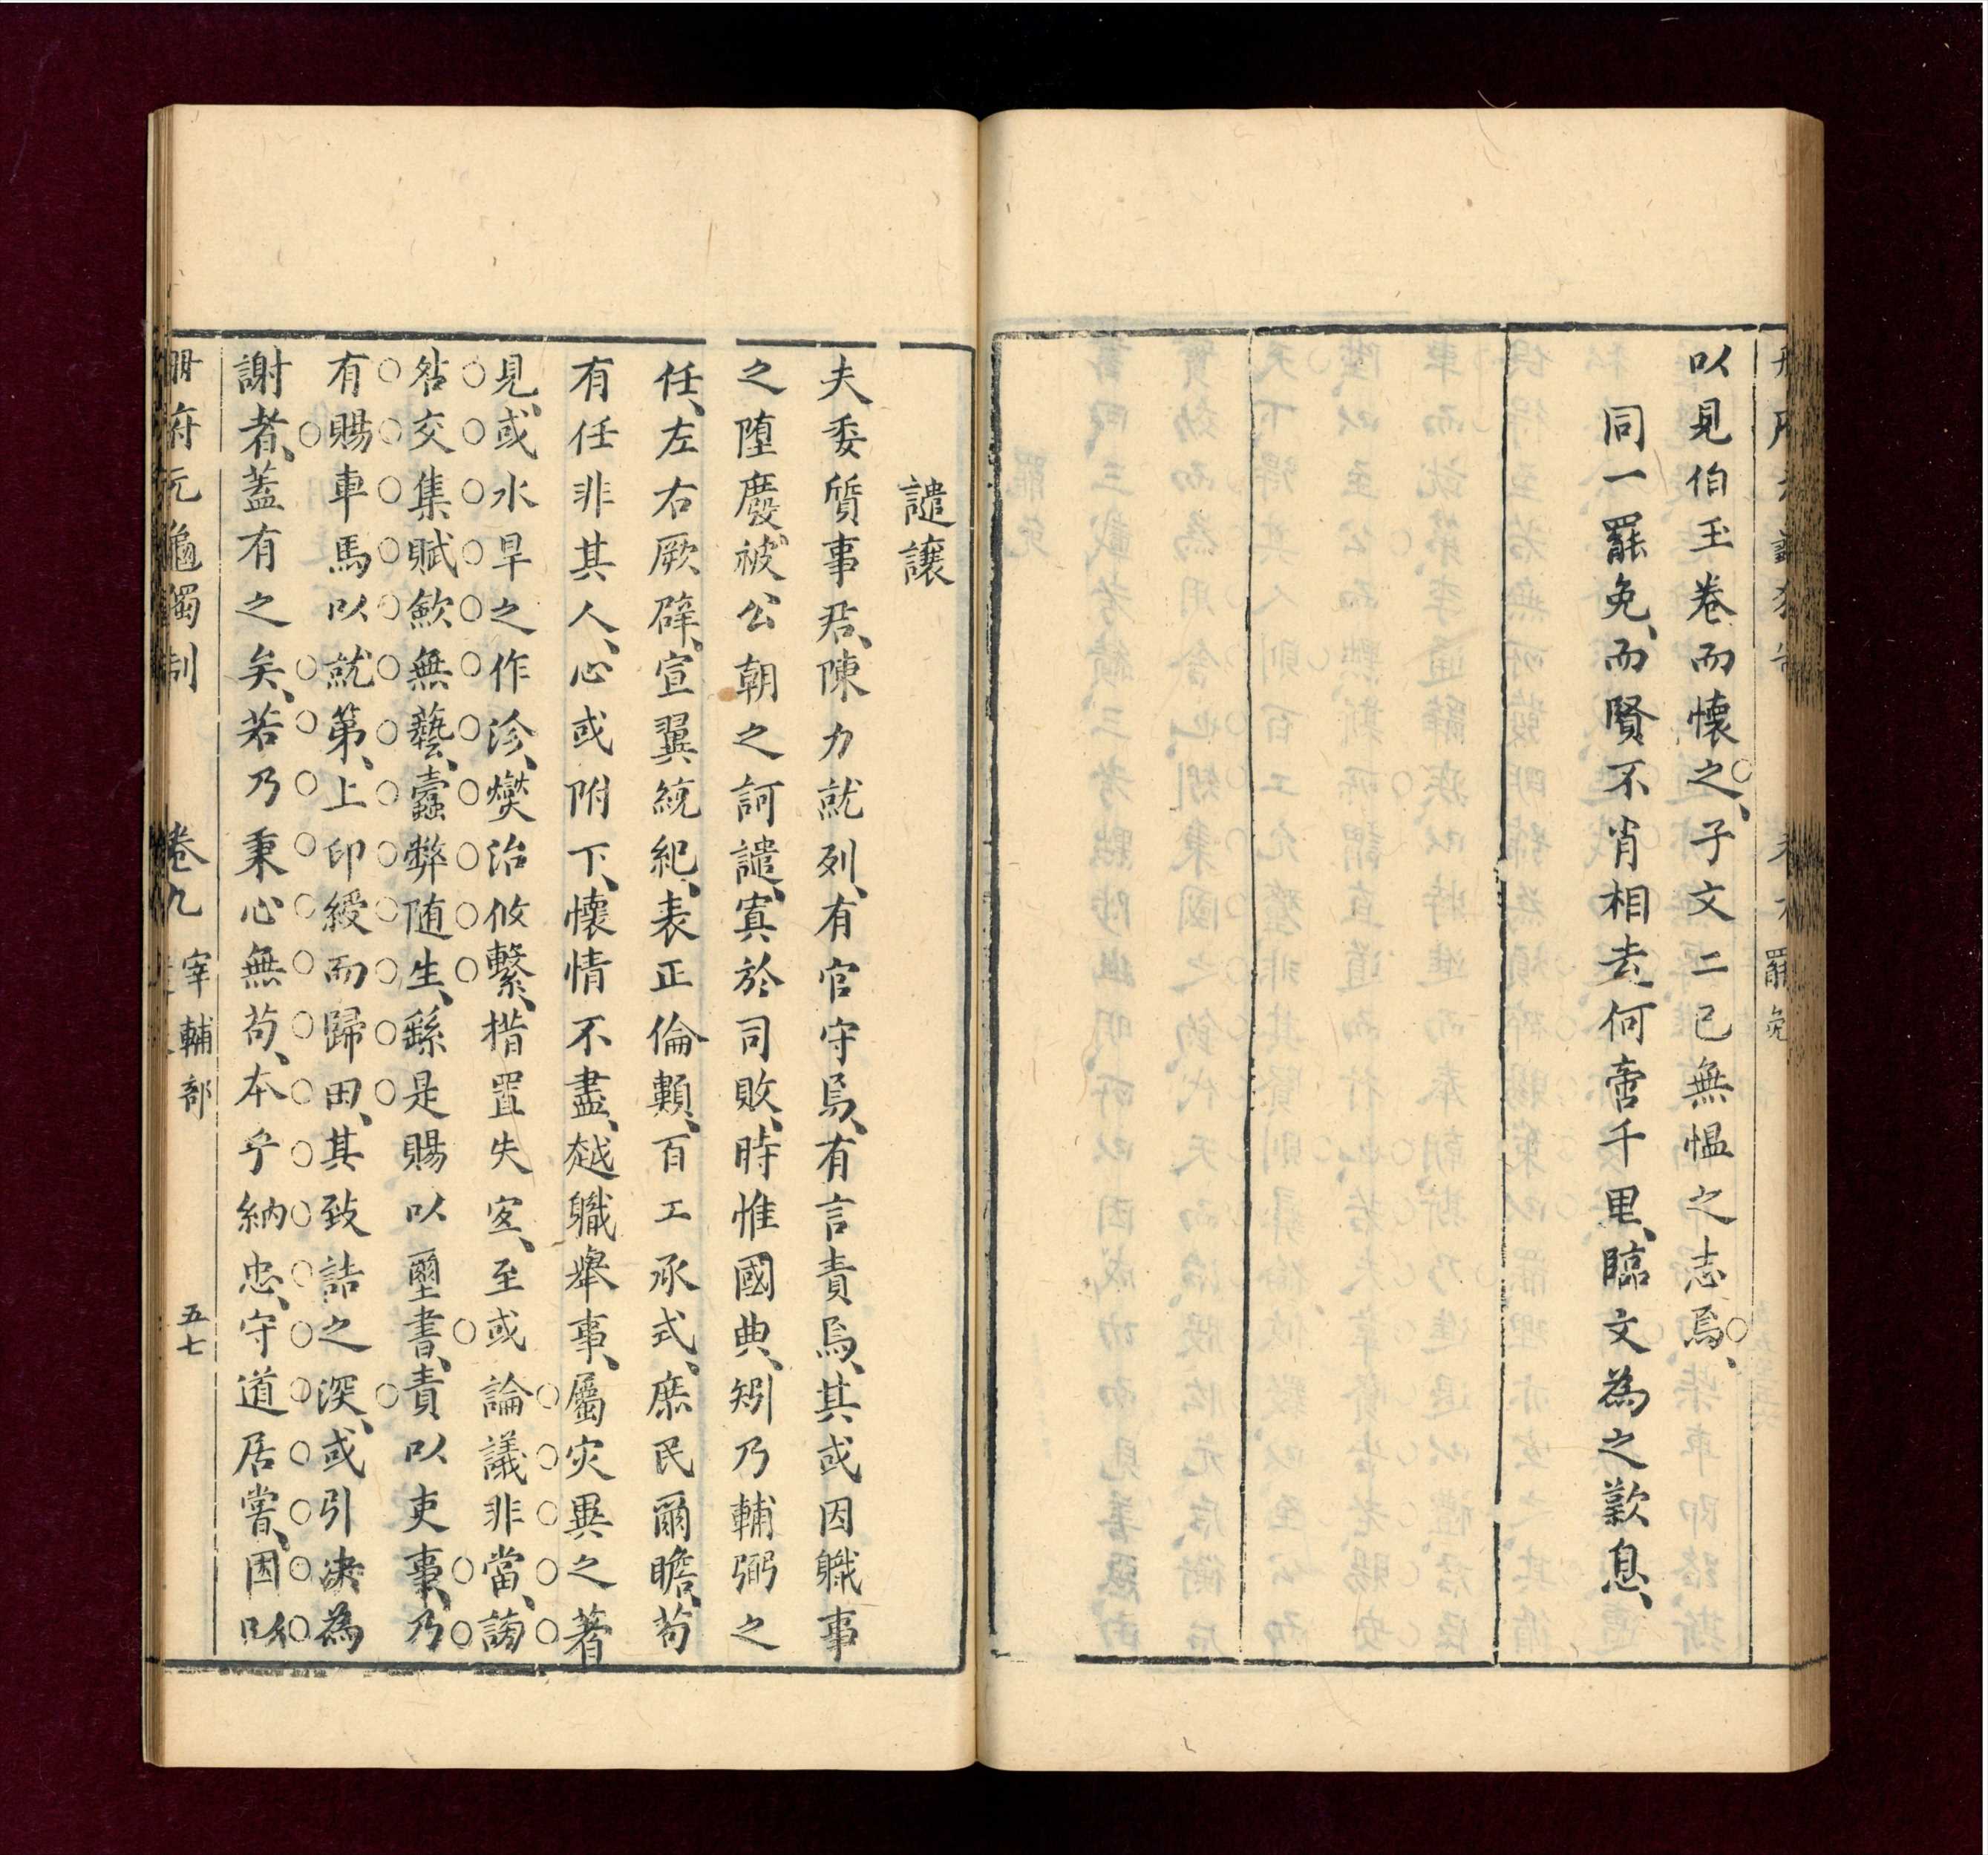 以見伯玉卷而懷之、子文二已無慍之志焉、
同一罷免、而賢不肖相去何啻千里、臨文為之歎息、
譴讓
夫委質事君、陳力就列、有官守焉、有言責焉、其或因職事
之墮廢、被公朝之訶譴、寘於司敗、時惟國典、矧乃輔弼之
任、左右厥辟、宣翼統紀、表正倫類、百工承式、庶民爾瞻、苟
有任非其人、心或附下、懷情不盡、越職舉事、屬灾異之著
見、或水旱之作沴、爕治攸繫、措置失宜、至或論議非當、謗
咎交集、賦歛無藝、蠹弊随生、繇是賜以璽書、責以吏事、乃
有賜車馬以就第、上印綬而歸田、其致詰之深、或引决為
謝者、蓋有之矣、若乃秉心無苟、本乎納忠、守道居嘗、因以
冊府元龜獨制 卷九 宰輔部 五七
罷免